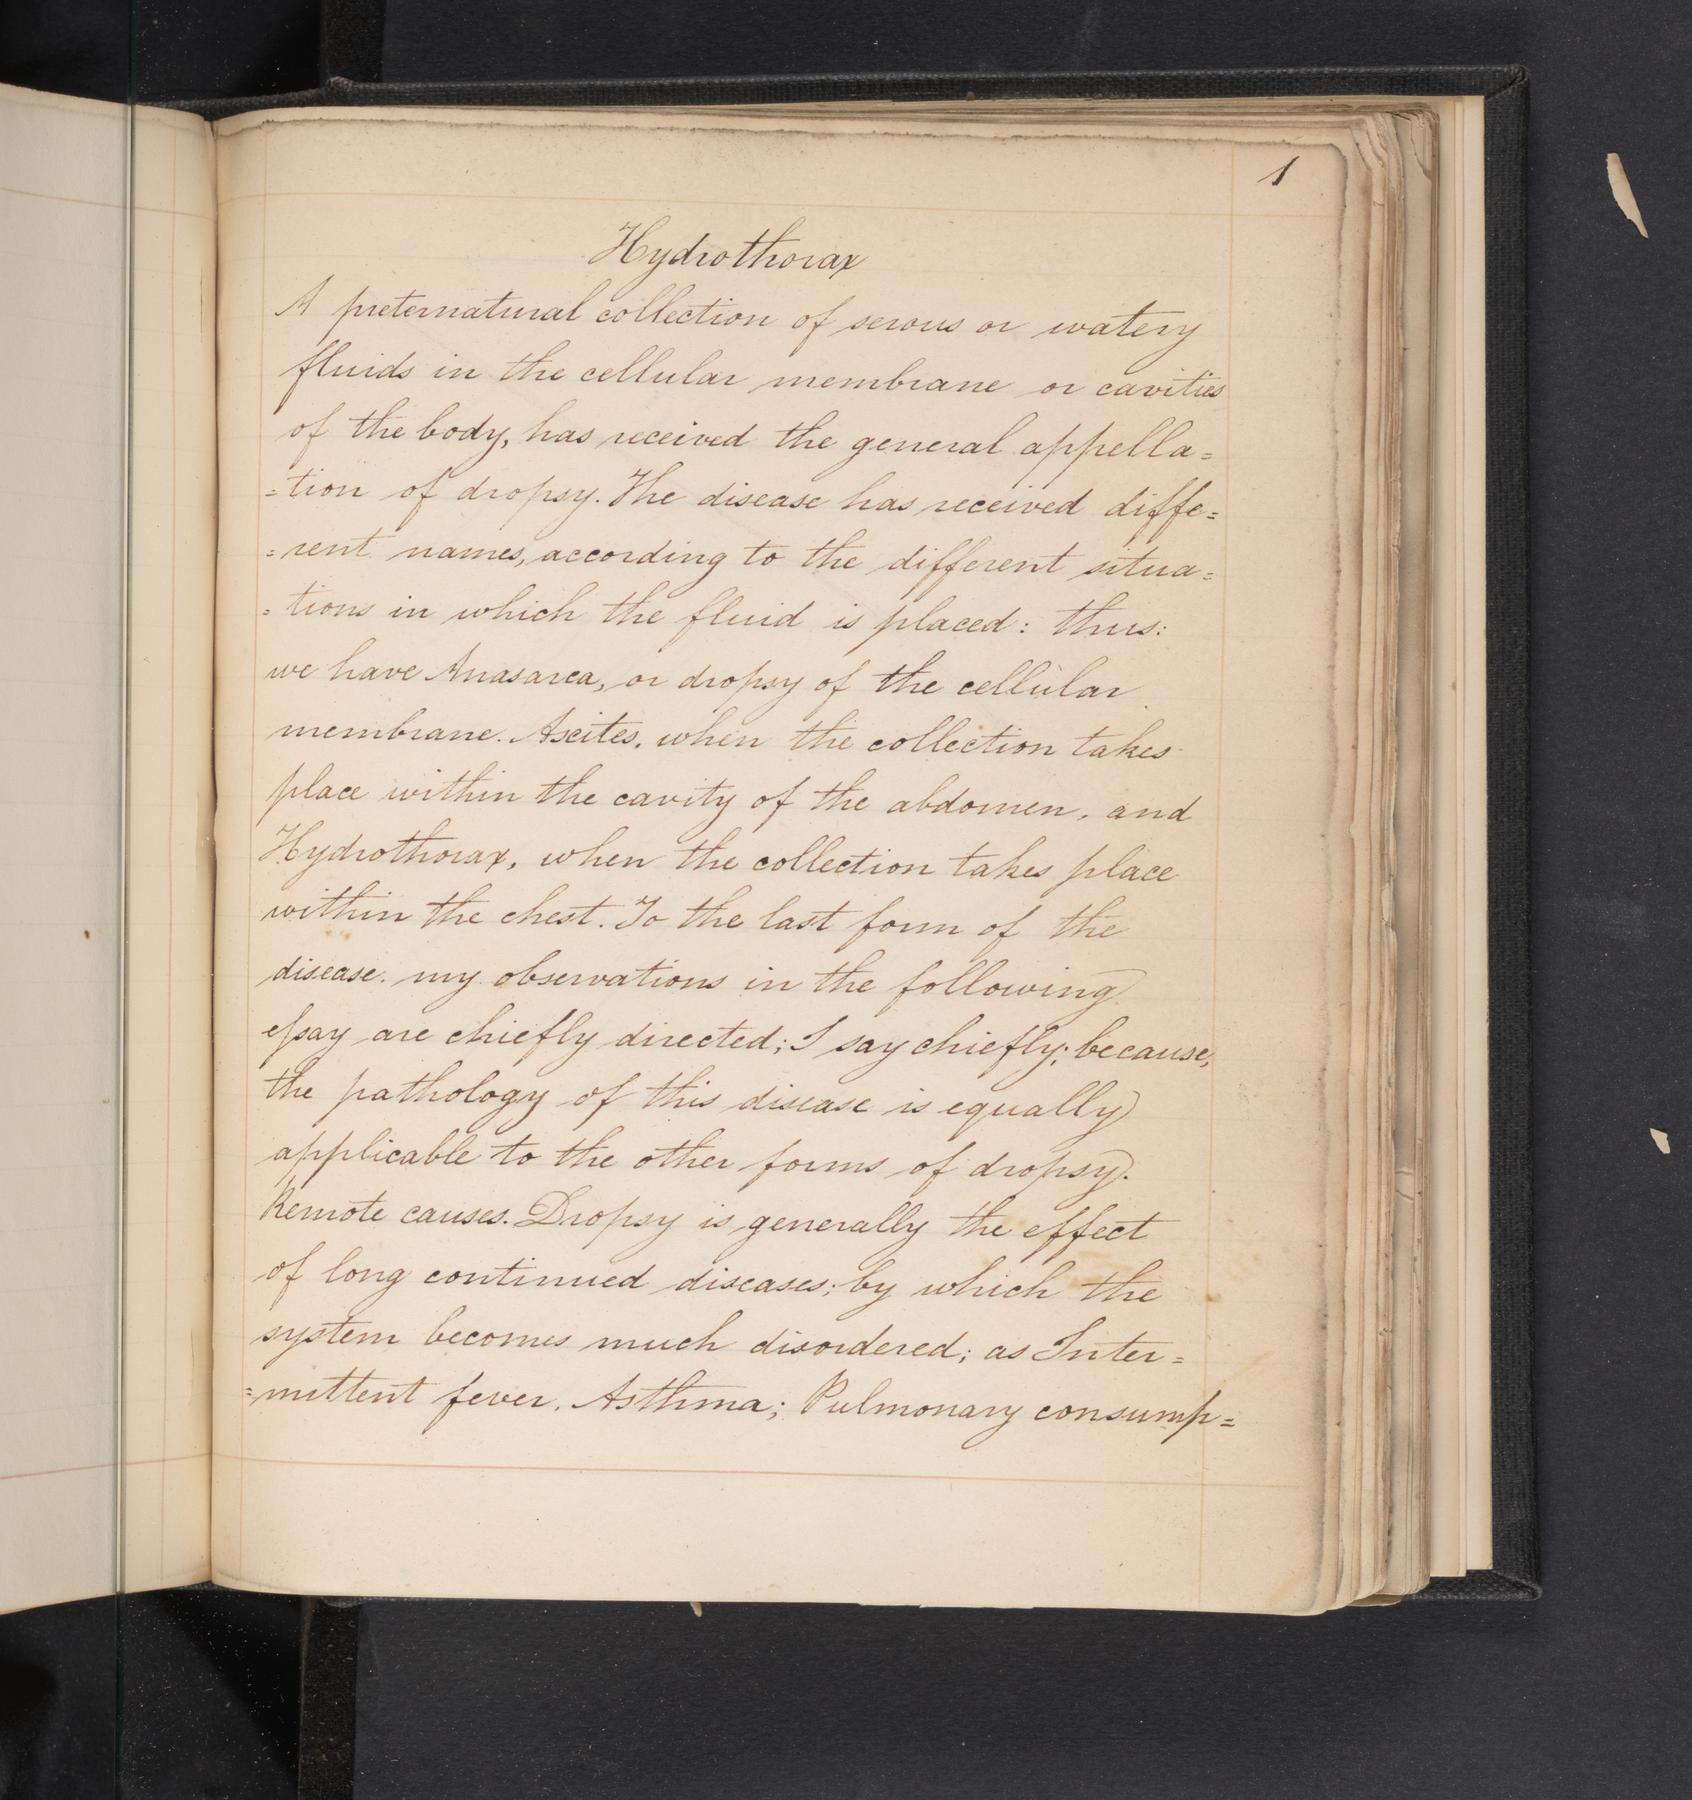 1
Hydrothorax
A preternatural collection of serous or watery
fluids in the cellular membrane or cavities
of the body, has received the general appella=
=tion of dropsy. The disease has received diffe=
=rent names, according to the different situa=
=tions in which the fluid is placed: thus:
we have Anasarca, or dropsy of the cellular
membrane. Ascites, when the collection takes
place within the cavity of the abdomen, and
Hydrothorax, when the collection takes place
within the chest. To the last form of the
disease. my observations in the following
eſsay are chiefly directed; I say chiefly; because,
the pathology of this disease is equally
applicable to the other forms of dropsy.
Remote causes. Dropsy is generally the effect
of long continued diseases; by which the
system becomes much disordered; as Inter=
=mittent fever, Asthma; Pulmonary consump=